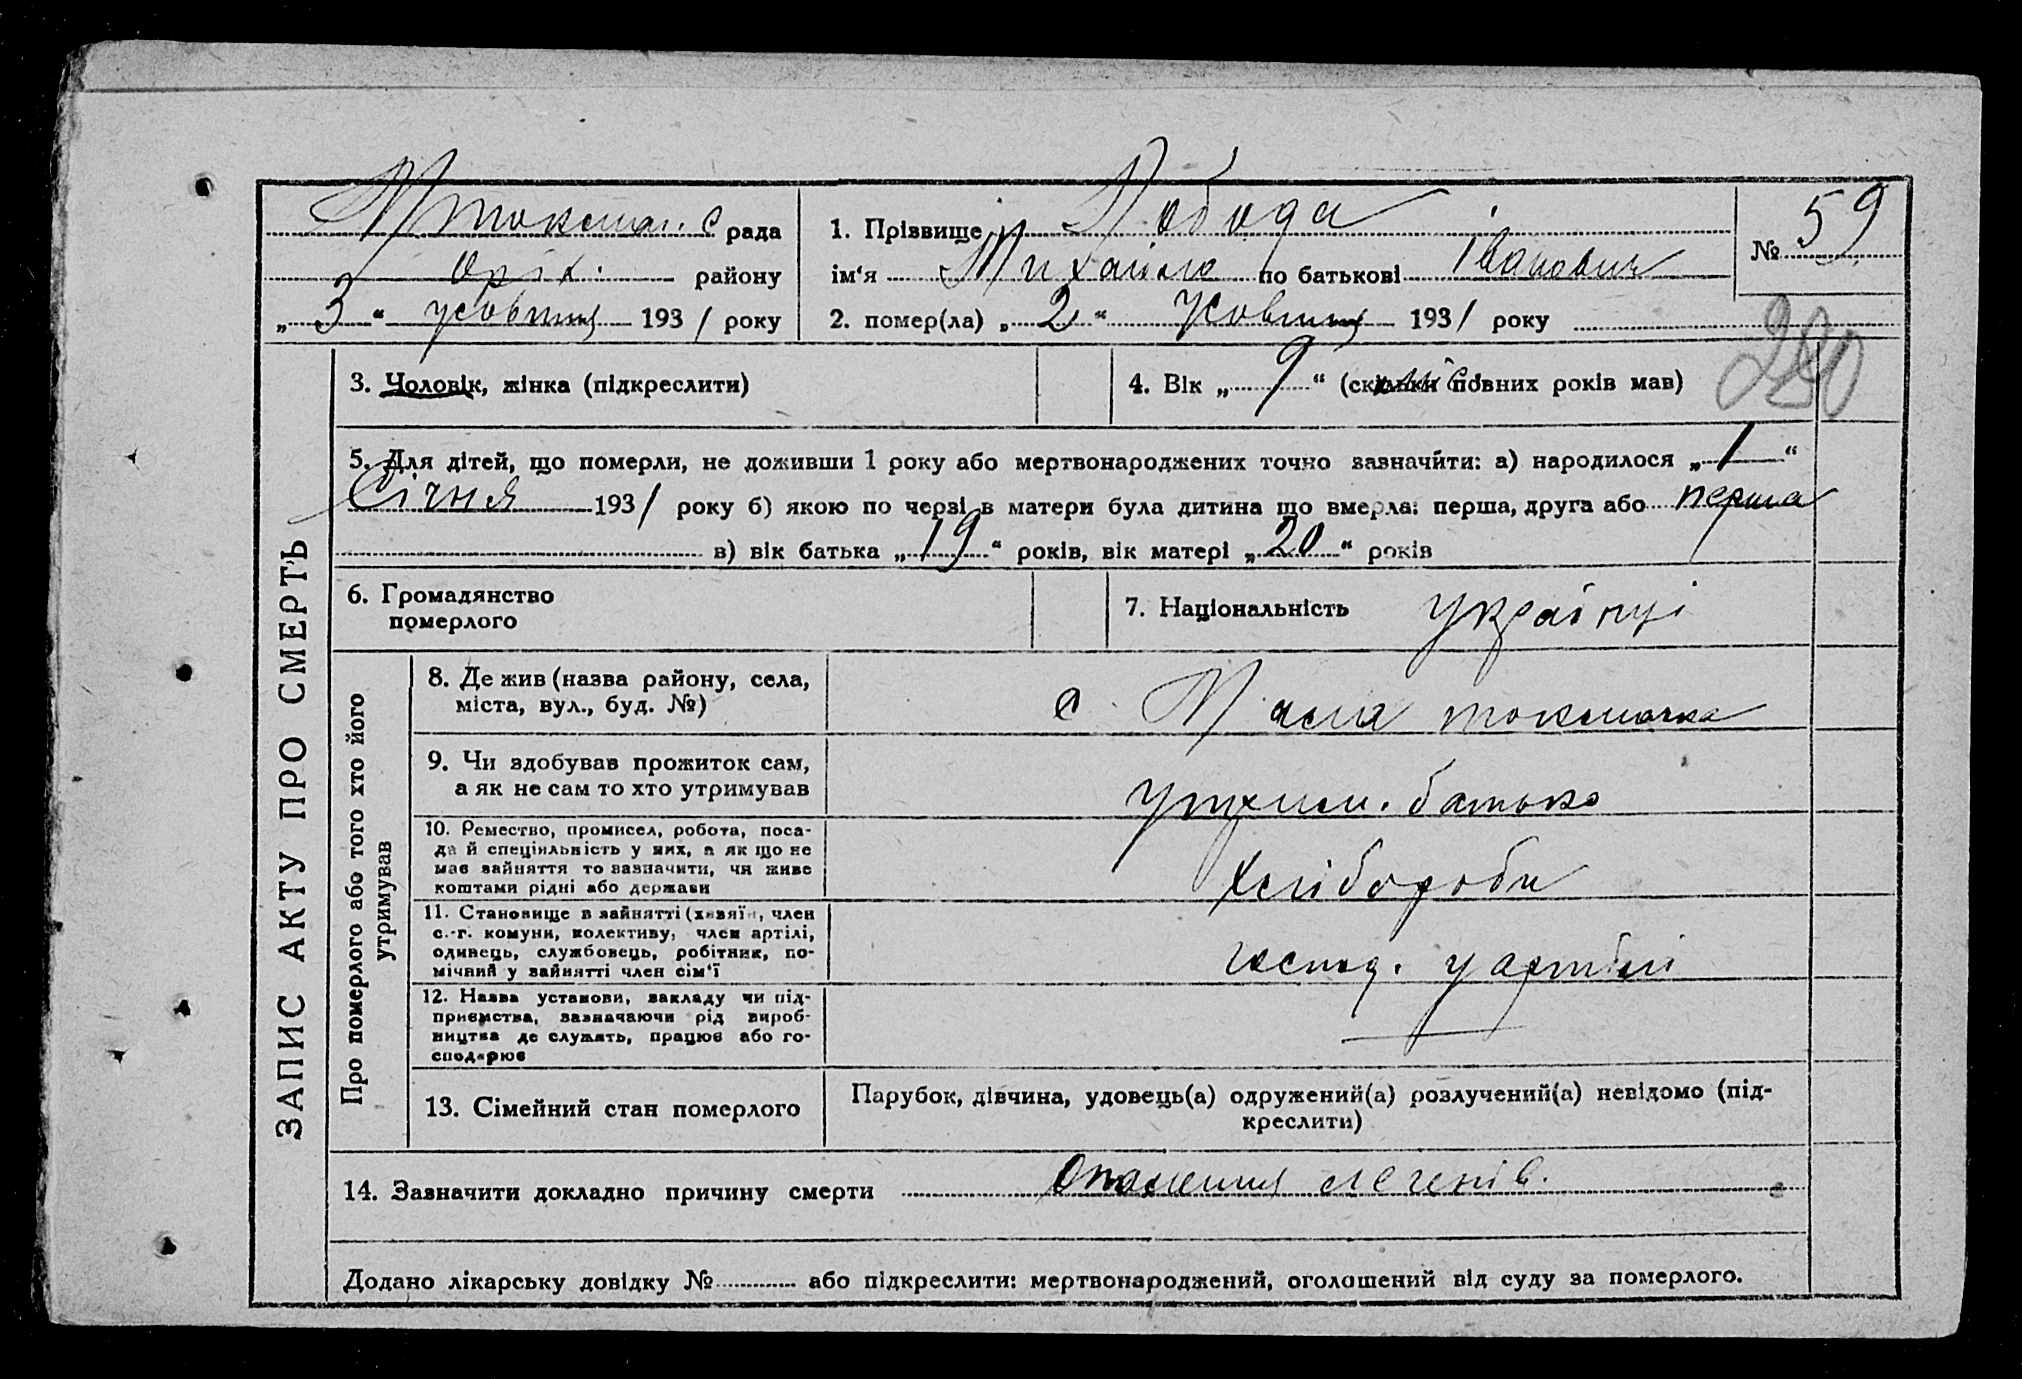 Мтокмач. С рада
Оріх. району
„3“ жовтня 1931 року
1. Прізвище Лобода
ім‘я Михайло по батькові Іванович
№ 59
2. помер(ла) „2“ Жовтня 1931 року
280
3. Чоловік, жінка (підкреслити)
4. Вік „9“ (скільки повних років мав) міс.
5. Для дітей, що померли, не доживши 1 року або мертвонароджених точно зазначити: а) народилося „1“
Січня 1931 року б) якою по черзі в матери була дитина що вмерла: перша, друга або перша
в) вік батька „19“ років, вік матері „20“ років
6. Громадянство
померлого
7. Національність Українці
ЗАПИС АКТУ ПРО СМЕРТЬ
Про померлого або того хто його
утримував
8. Де жив (назва району, села,
міста, вул., буд. №)
с. Мала токмачка
9. Чи здобував прожиток сам,
а як не сам то хто утримував
утрим. батько
10. Ремество, промисел, робота, поса-
да й спеціяльність у них, а як що не
має зайняття то зазначити, чи живе
коштами рідні або держави
Хлібороби
11. Становище в зайнятті (хазяїн, член
с.-г. комуни, колективу, член артілі,
одинець, службовець, робітник, по-
мічний у зайнятті член сім‘ї
господ. у артілі
12. Назва установи, закладу чи під-
приємства, зазначаючи рід вироб-
ництва де служать, працює або го-
сподарює
13. Сімейний стан померлого
Парубок, дівчина, удовець(а) одружений(а) розлучений(а) невідомо (під-
креслити)
14. Зазначити докладно причину смерти Опалення легенів.
Додано лікарську довідку № або підкреслити: мертвонароджений, оголошений від суду за померлого.